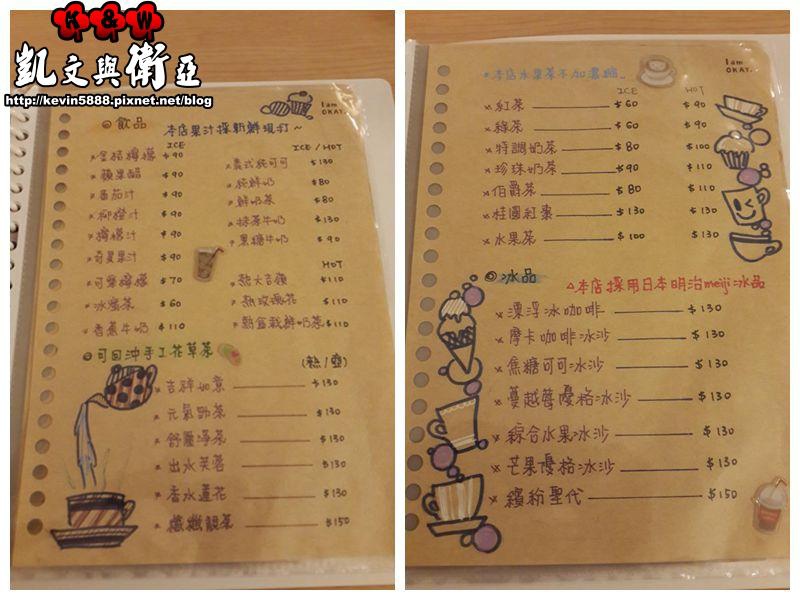 K&W
凱文與衛亞
http://kevin5888.pixnet.net/blog
I am
OKAY.
◎飲品 本店果汁採新鮮現打~
ICE
ICE / HOT
金桔檸檬 $90
蘋果醋 $90
番茄汁 $90
柳橙汁 $90
檸檬汁 $90
奇異果汁 $90
可樂檸檬 $70
冰蜜茶 $60
香蕉牛奶 $110
義式純可可 $130
純鮮奶 $80
鮮奶茶 $80
抹茶牛奶 $130
黑糖牛奶 $90
HOT
熱大吉嶺 $110
熱玫瑰花 $110
熱盆栽鮮奶茶 $110
◎可回沖手工花草茶 (熱/壺)
吉祥如意 $130
元氣勁茶 $130
舒壓淨茶 $130
出水芙蓉 $130
香水蓮花 $130
纖纖靚茶 $150
I am
OKAY.
*本店水果茶不加濃糖
ICE HOT
紅茶 $60 $90
綠茶 $60 $90
特調奶茶 $80 $100
珍珠奶茶 $90 $110
伯爵茶 $80 $110
桂圓紅棗 $130 $130
水果茶 $100 $130
◎冰品
△本店採用日本明治meiji冰品
漂浮冰咖啡 $130
摩卡咖啡冰沙 $130
焦糖可可冰沙 $130
蔓越莓優格冰沙 $130
綜合水果冰沙 $130
芒果優格冰沙 $130
繽紛聖代 $150